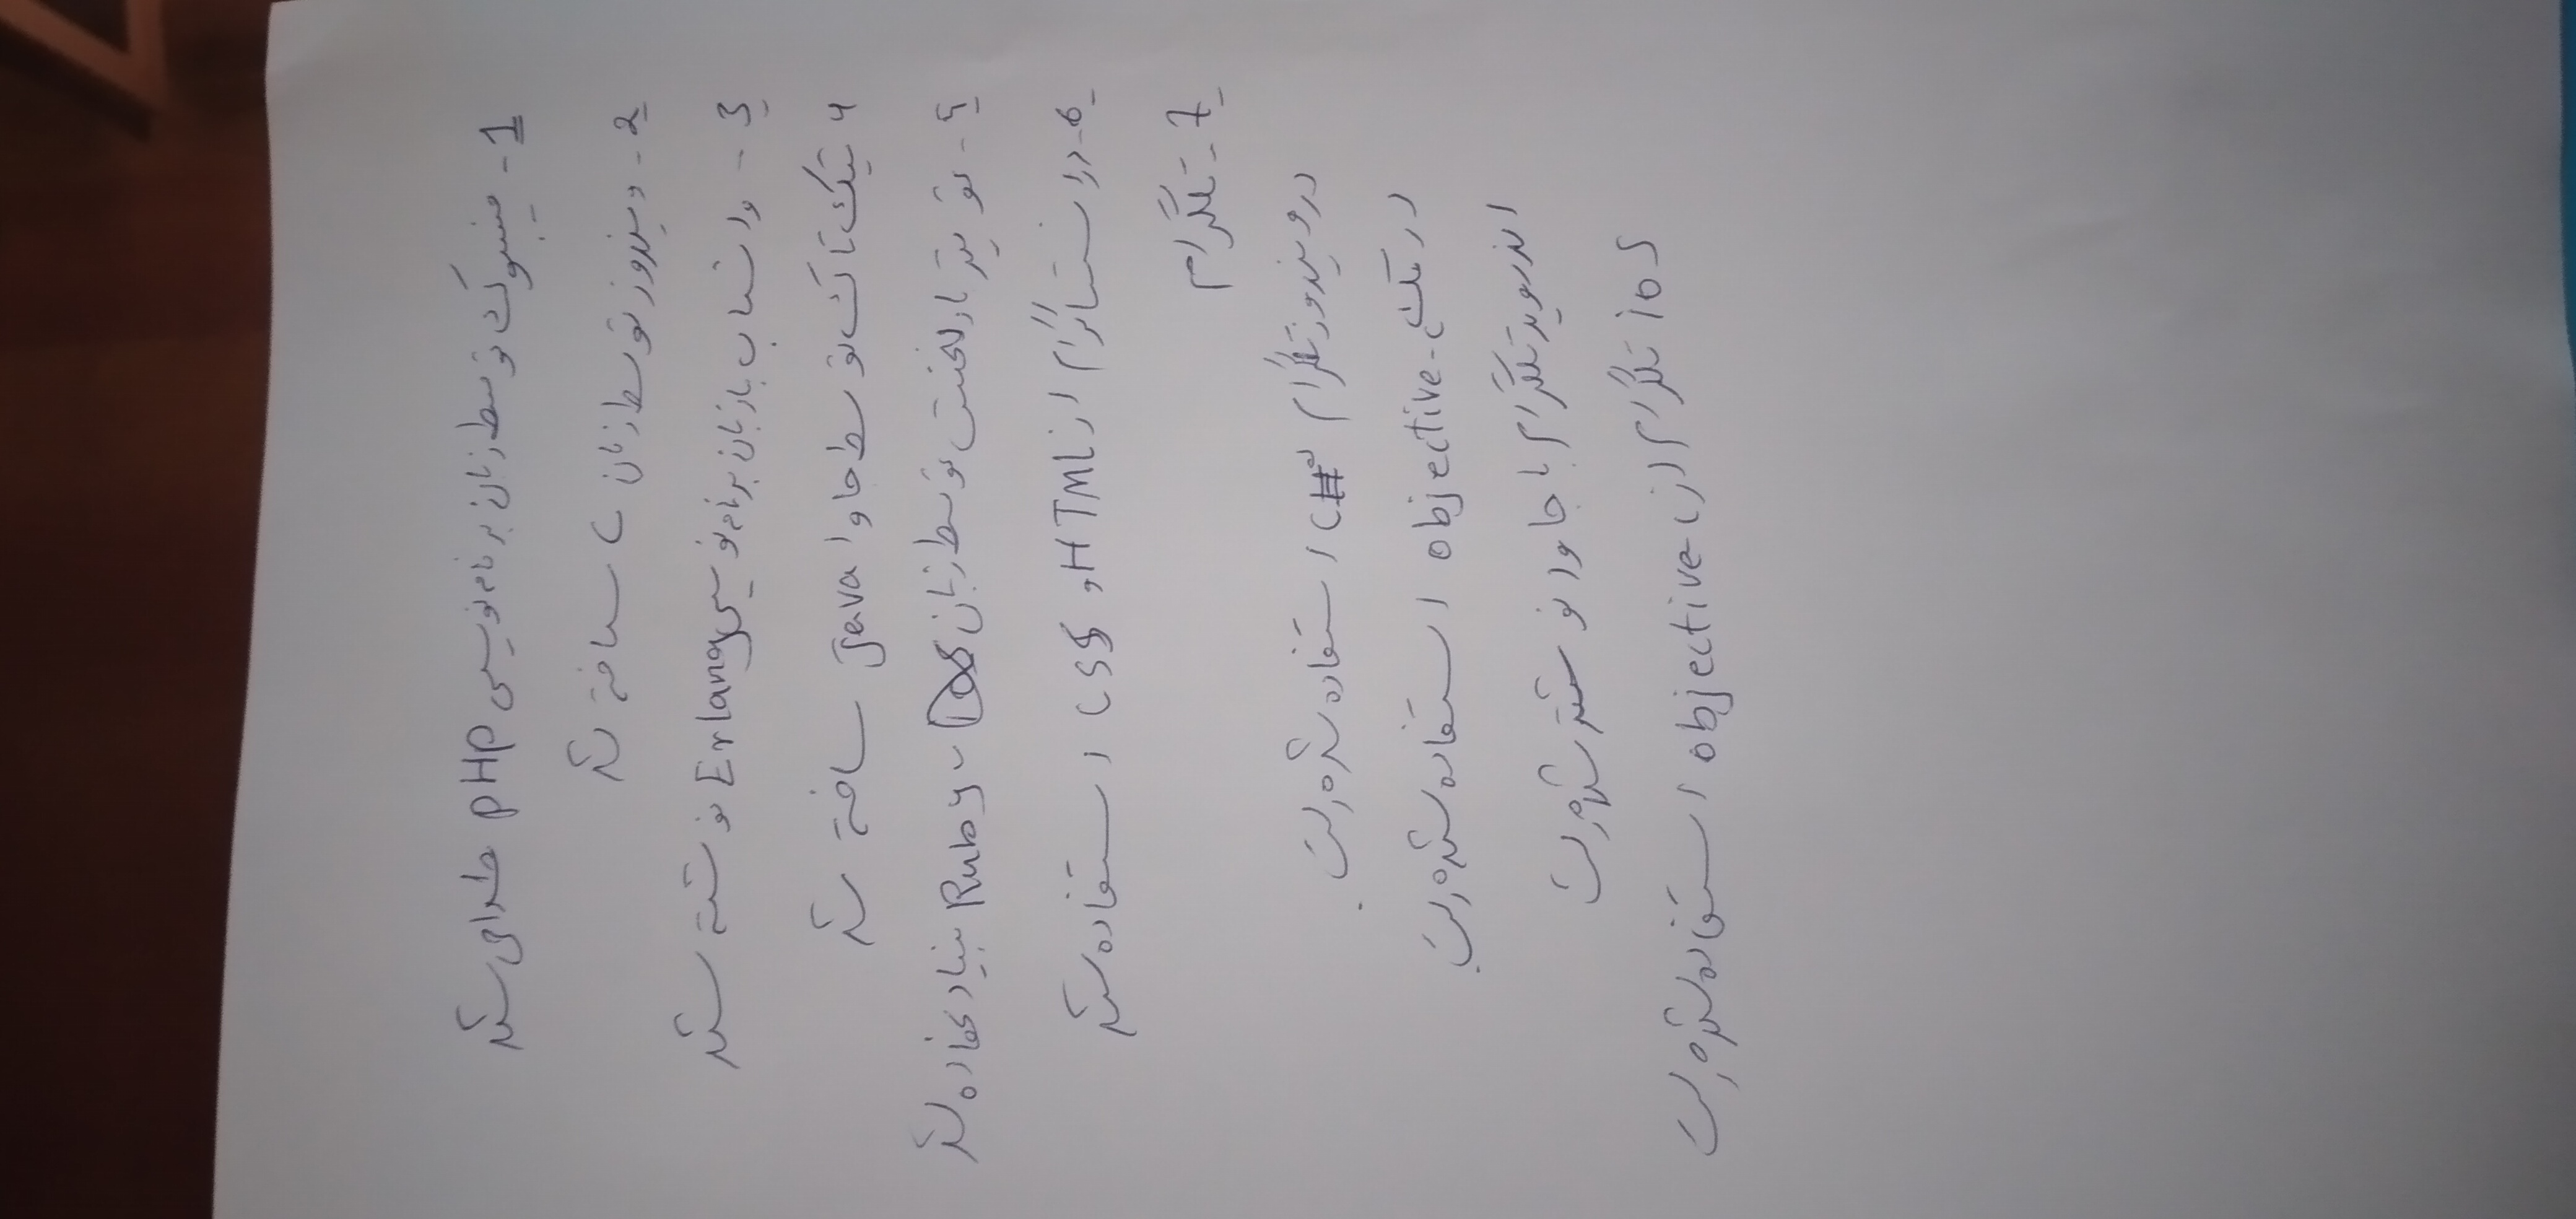 1- فیسبوک توسط زبان برنامه نویسی PHP طراحی شد
2- ویندوز توسط زبان C ساخته شد
3- واتساب با زبان برنامه نویسی Erlang نوشته شد
4 تیک تاک توسط جاوا Java ساخته شد
5- تویتر نخست توسط زبان Ruby بنیاد نهاده شد
6- در انستاگرام از HTML و CSS استفاده شد
7- تلگرام
در ویندوز تلگرام C# استفاده شده است.
در مک objective-c استفاده شده است.
اندروید تلگرام با جاوا نوشته شده است
ios تلگرام از objective-c استفاده شده است